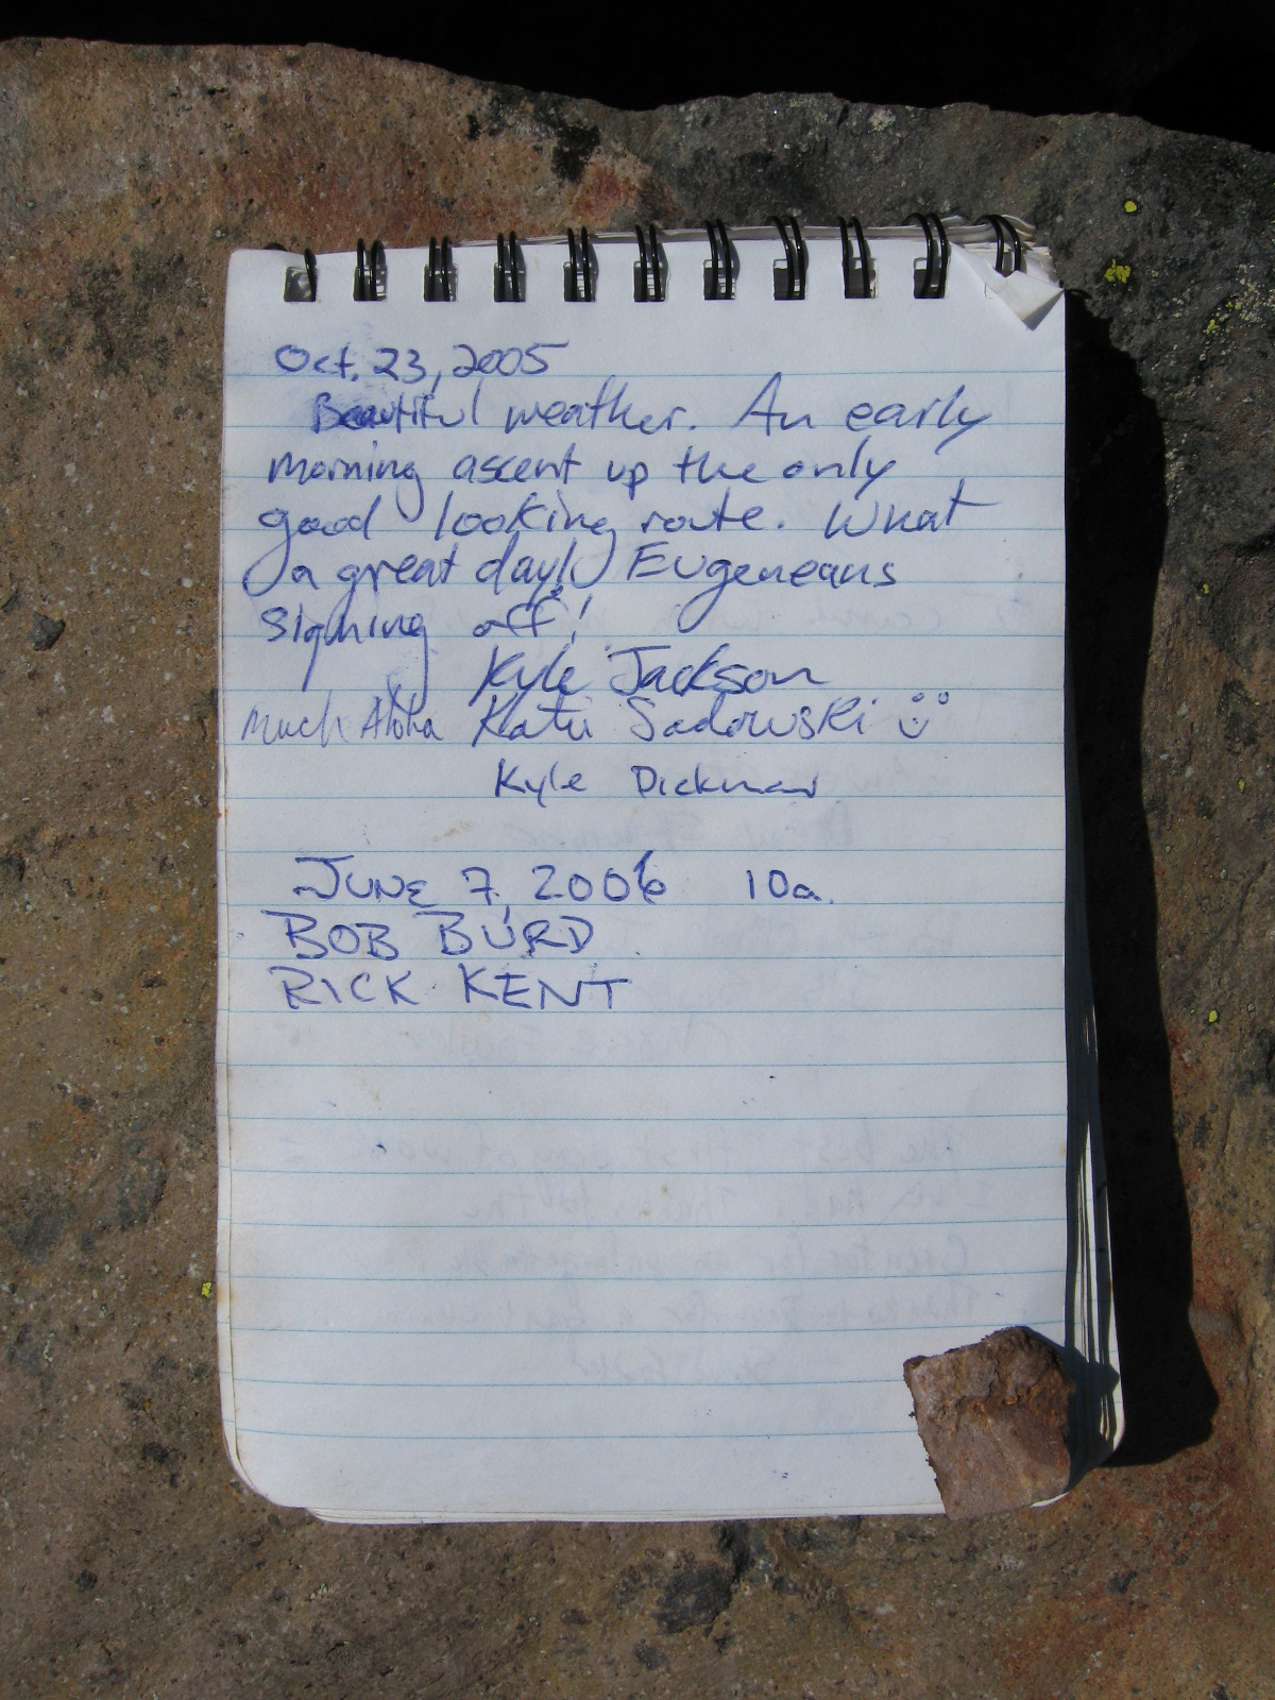 Oct. 23, 2005
Beautiful weather. An early
morning ascent up the only
good looking route. What
a great day! Eugeneans
signing off!
Kyle Jackson
Much Aloha Katie Sadowski
Kyle Dickman
JUNE 7, 2006 10a.
BOB BURD
RICK KENT